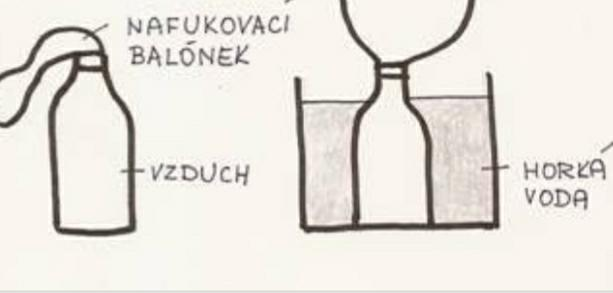 NAFUKOVACI
BALÓNEK
VZDUCH
HORKA
VODA